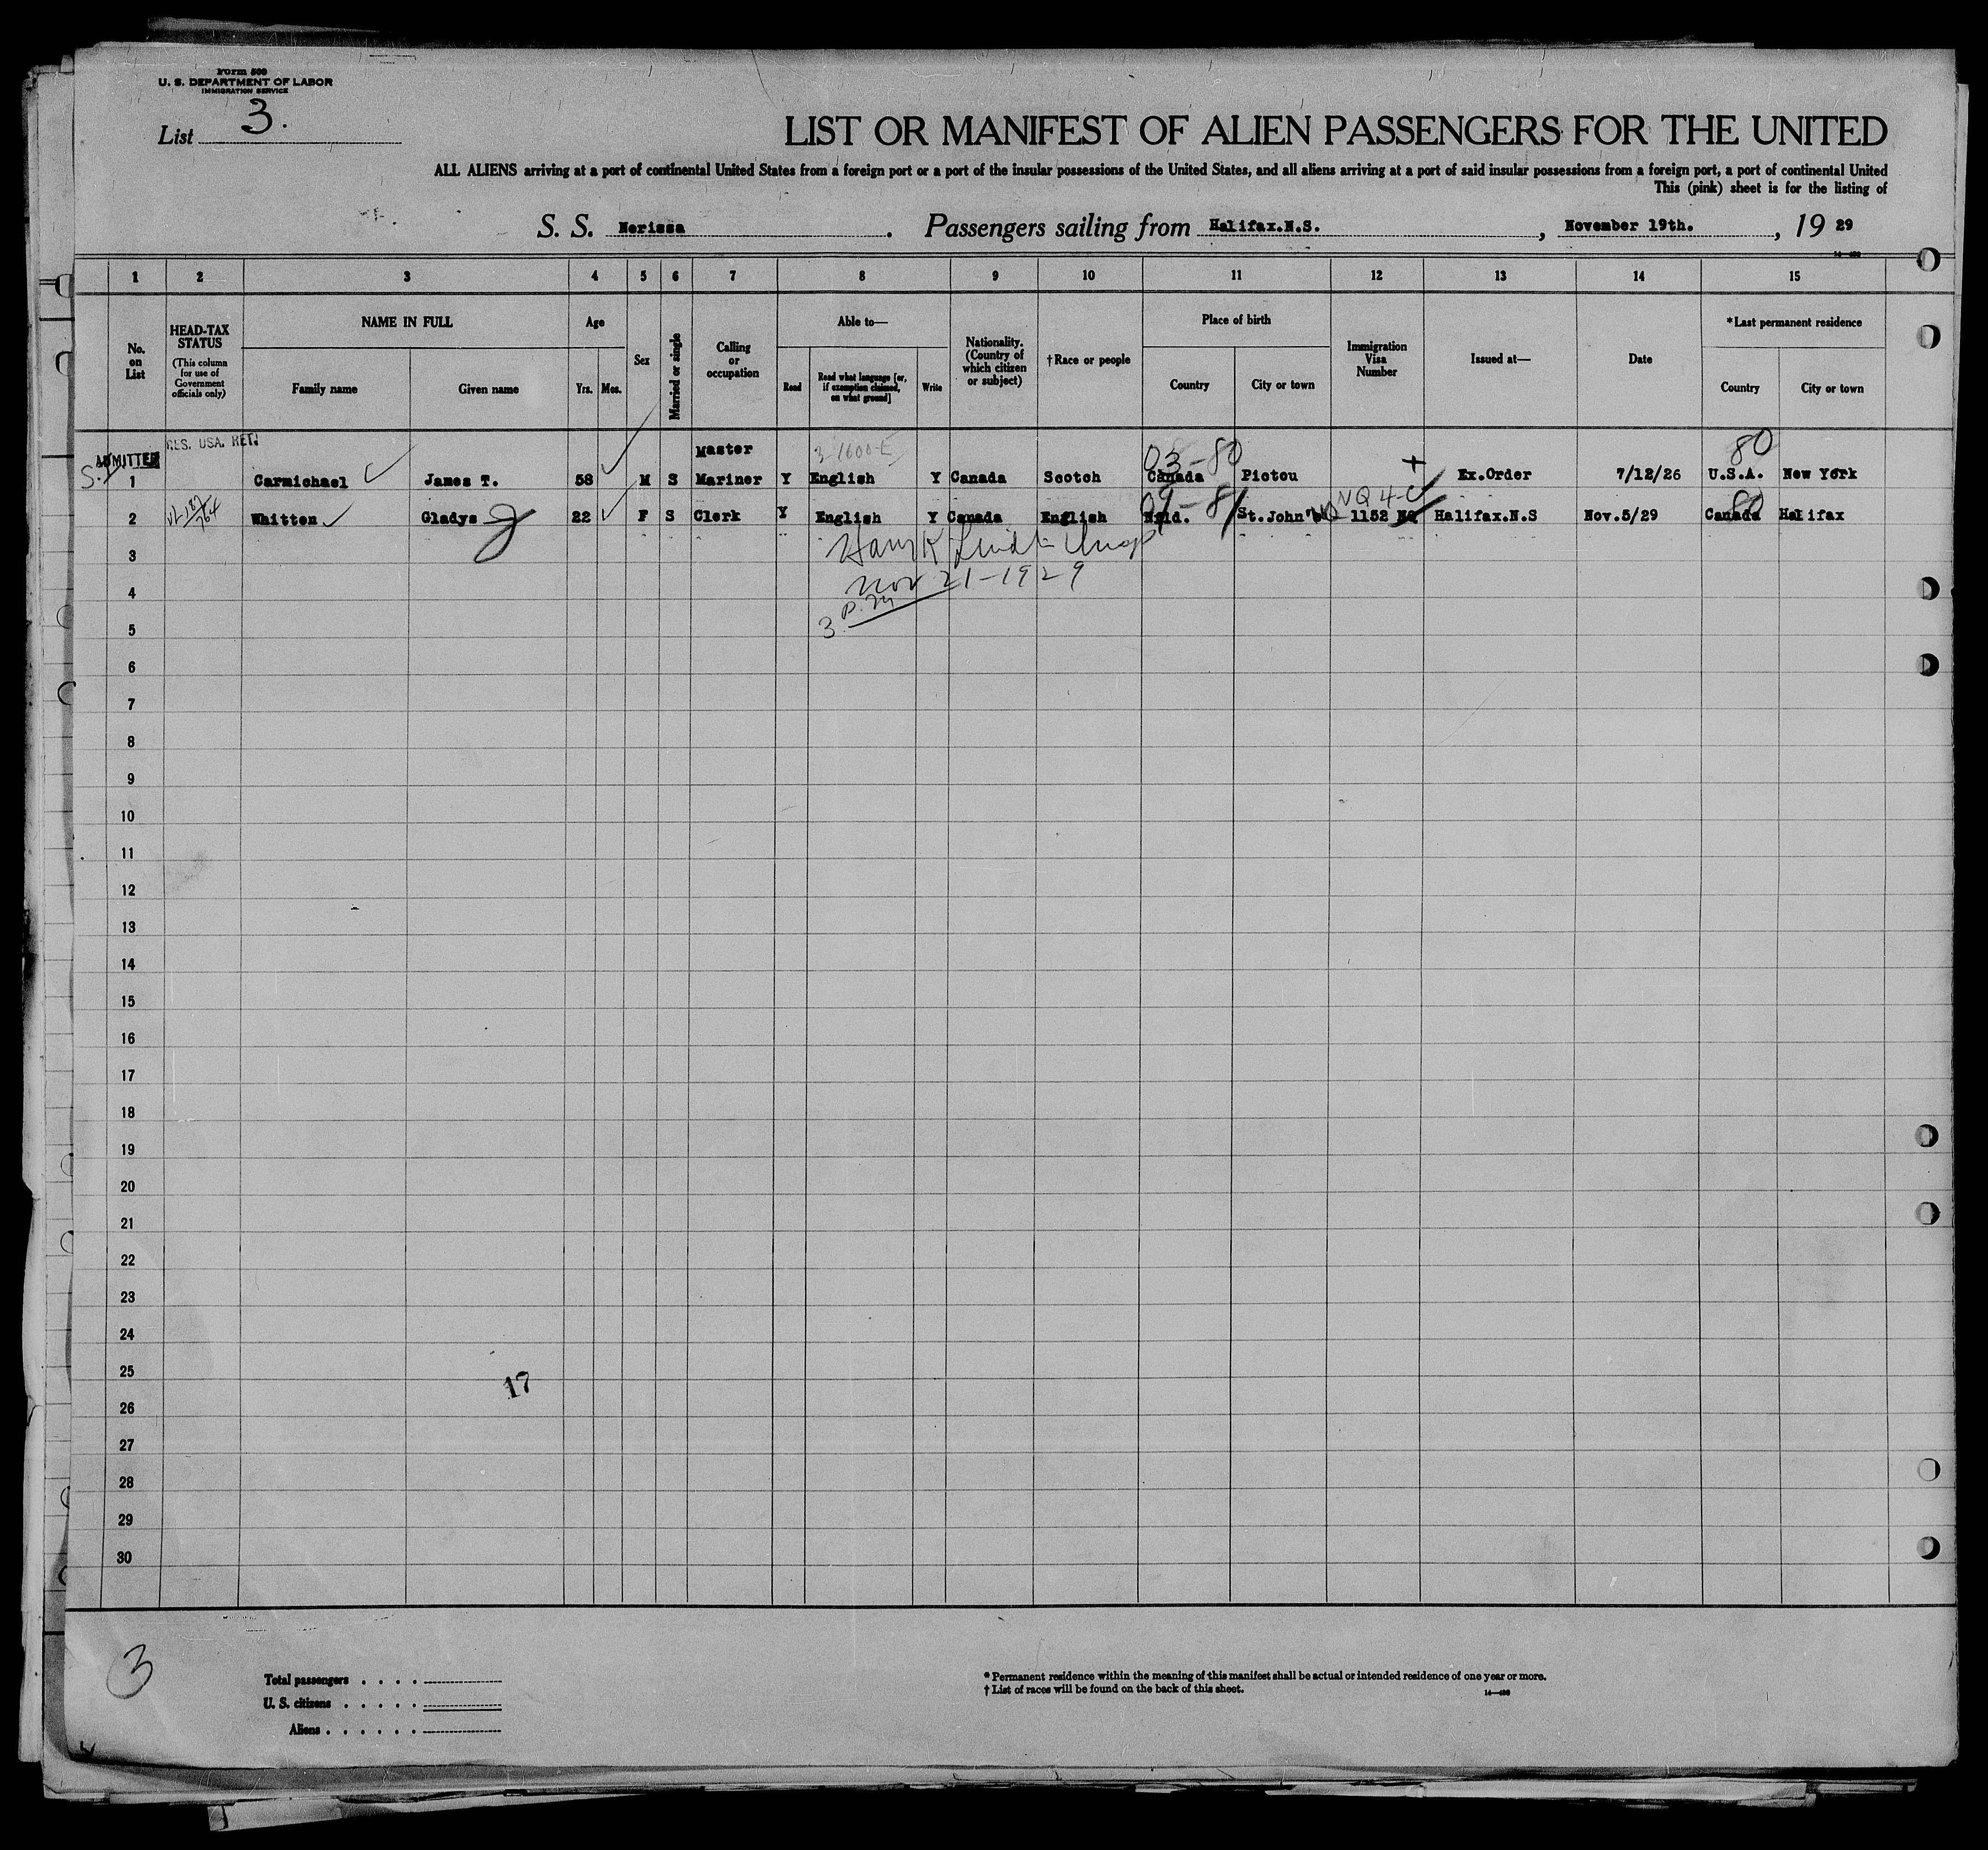 Form 500
U. S. DEPARTMENT OF LABOR
IMMIGRATION SERVICE
List 3.
LIST OR MANIFEST OF ALIEN PASSENGERS FOR THE UNITED
ALL ALIENS arriving at a port of continental United States from a foreign port or a port of the insular possessions of the United States, and all aliens arriving at a port of said insular possessions from a foreign port, a port of continental United
This (pink) sheet is for the listing of
S. S. Nerissa. Passengers sailing from Halifax.N.S., November 19th., 19 29
1 2 3 4 5 6 7 8 9 10 11 12 13 14 15
No. on List
HEAD-TAX STATUS (This column for use of Government officials only)
NAME IN FULL
Family name Given name
Age
Yrs. Mos.
Sex
Married or single
Calling or occupation
Able to—
Read Read what language [or, if exemption claimed, on what ground] Write
Nationality. (Country of which citizen or subject)
†Race or people
Place of birth
Country City or town
Immigration Visa Number
Issued at—
Date
*Last permanent residence
Country City or town
RES. USA. RET.
ADMITTED
3-1600-E 03-80 80
1 Carmichael James T. 58 M S Master Mariner Y English Y Canada Scotch Canada Pictou Ex.Order 7/12/26 U.S.A. New York
NQ 4-C
2 Whitten Gladys 22 F S Clerk Y English Y Canada English Nfld. St.John 1152 NQ Halifax.N.S Nov.5/29 Canada Halifax
3
Nov 21-1929
4
5
6
7
8
9
10
11
12
13
14
15
16
17
18
19
20
21
22
23
24
25
17
26
27
28
29
30
3
Total passengers . . . .
U. S. citizens . . . . .
Aliens . . . . . .
* Permanent residence within the meaning of this manifest shall be actual or intended residence of one year or more.
† List of races will be found on the back of this sheet.